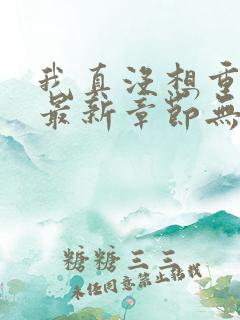 我真没想重
最新章节無
糖糖三三
未经同意禁止转载